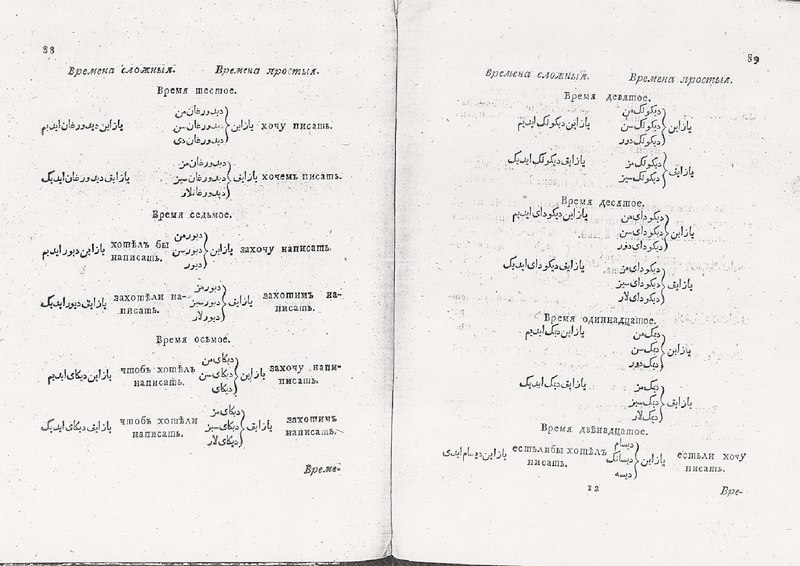 88
Времена сложныя. Времена простыя.
Время шестое.
دیدورغان من
یازاین دیدورغان ایدیم دیدورغان سن یازاین хочу писать.
دیدورغان دی
دیدورغان مز
یازایق دیدورغان ایدیک دیدورغان سیز یازایق хочемъ писать.
دیدورغانلار
Время седьмое.
دیورمن
یازاین دیور ایدیم хотѣлъ бы написать. دیورسن یازاین захочу написать.
دیور
دیورمز
یازایق دیور ایدیک захотѣли написать. دیورسیز یازایق захотимъ написать.
دیورلار
Время осьмое.
دیکای من
یازاین دیکای ایدیم чтобъ хотѣлъ написать. دیکای سن یازاین захочу написать.
دیکای
دیکای مز
یازایق دیکای ایدیک чтобъ хотѣли написать. دیکای سیز یازایق захотимъ написать.
دیکای لار
Време-
89
Времена сложныя. Времена простыя.
Время девятое.
دیکولک من
یازاین دیکولک ایدیم دیکولک سن یازاین
دیکولک دور
یازایق دیکولک ایدیک دیکولک مز یازایق
دیکولک سیز
Время десятое.
یازاین دیکودای ایدیم دیکودای من
دیکودای سن یازاین
دیکودای دور
یازایق دیکودای ایدیک دیکودای مز
دیکودای سیز یازایق
دیکودای لار
Время одиннадцатое.
یازاین دیک ایدیم دیک من
دیک سن یازاین
دیک دور
یازایق دیک ایدیک دیک مز
دیک سیز یازایق
دیک لار
Время двѣнадцатое.
دیسام
یازاین دیسام ایدی естьлибы хотѣлъ писать. دیسانک یازاین естьли хочу писать.
دیسه
12 Вре-